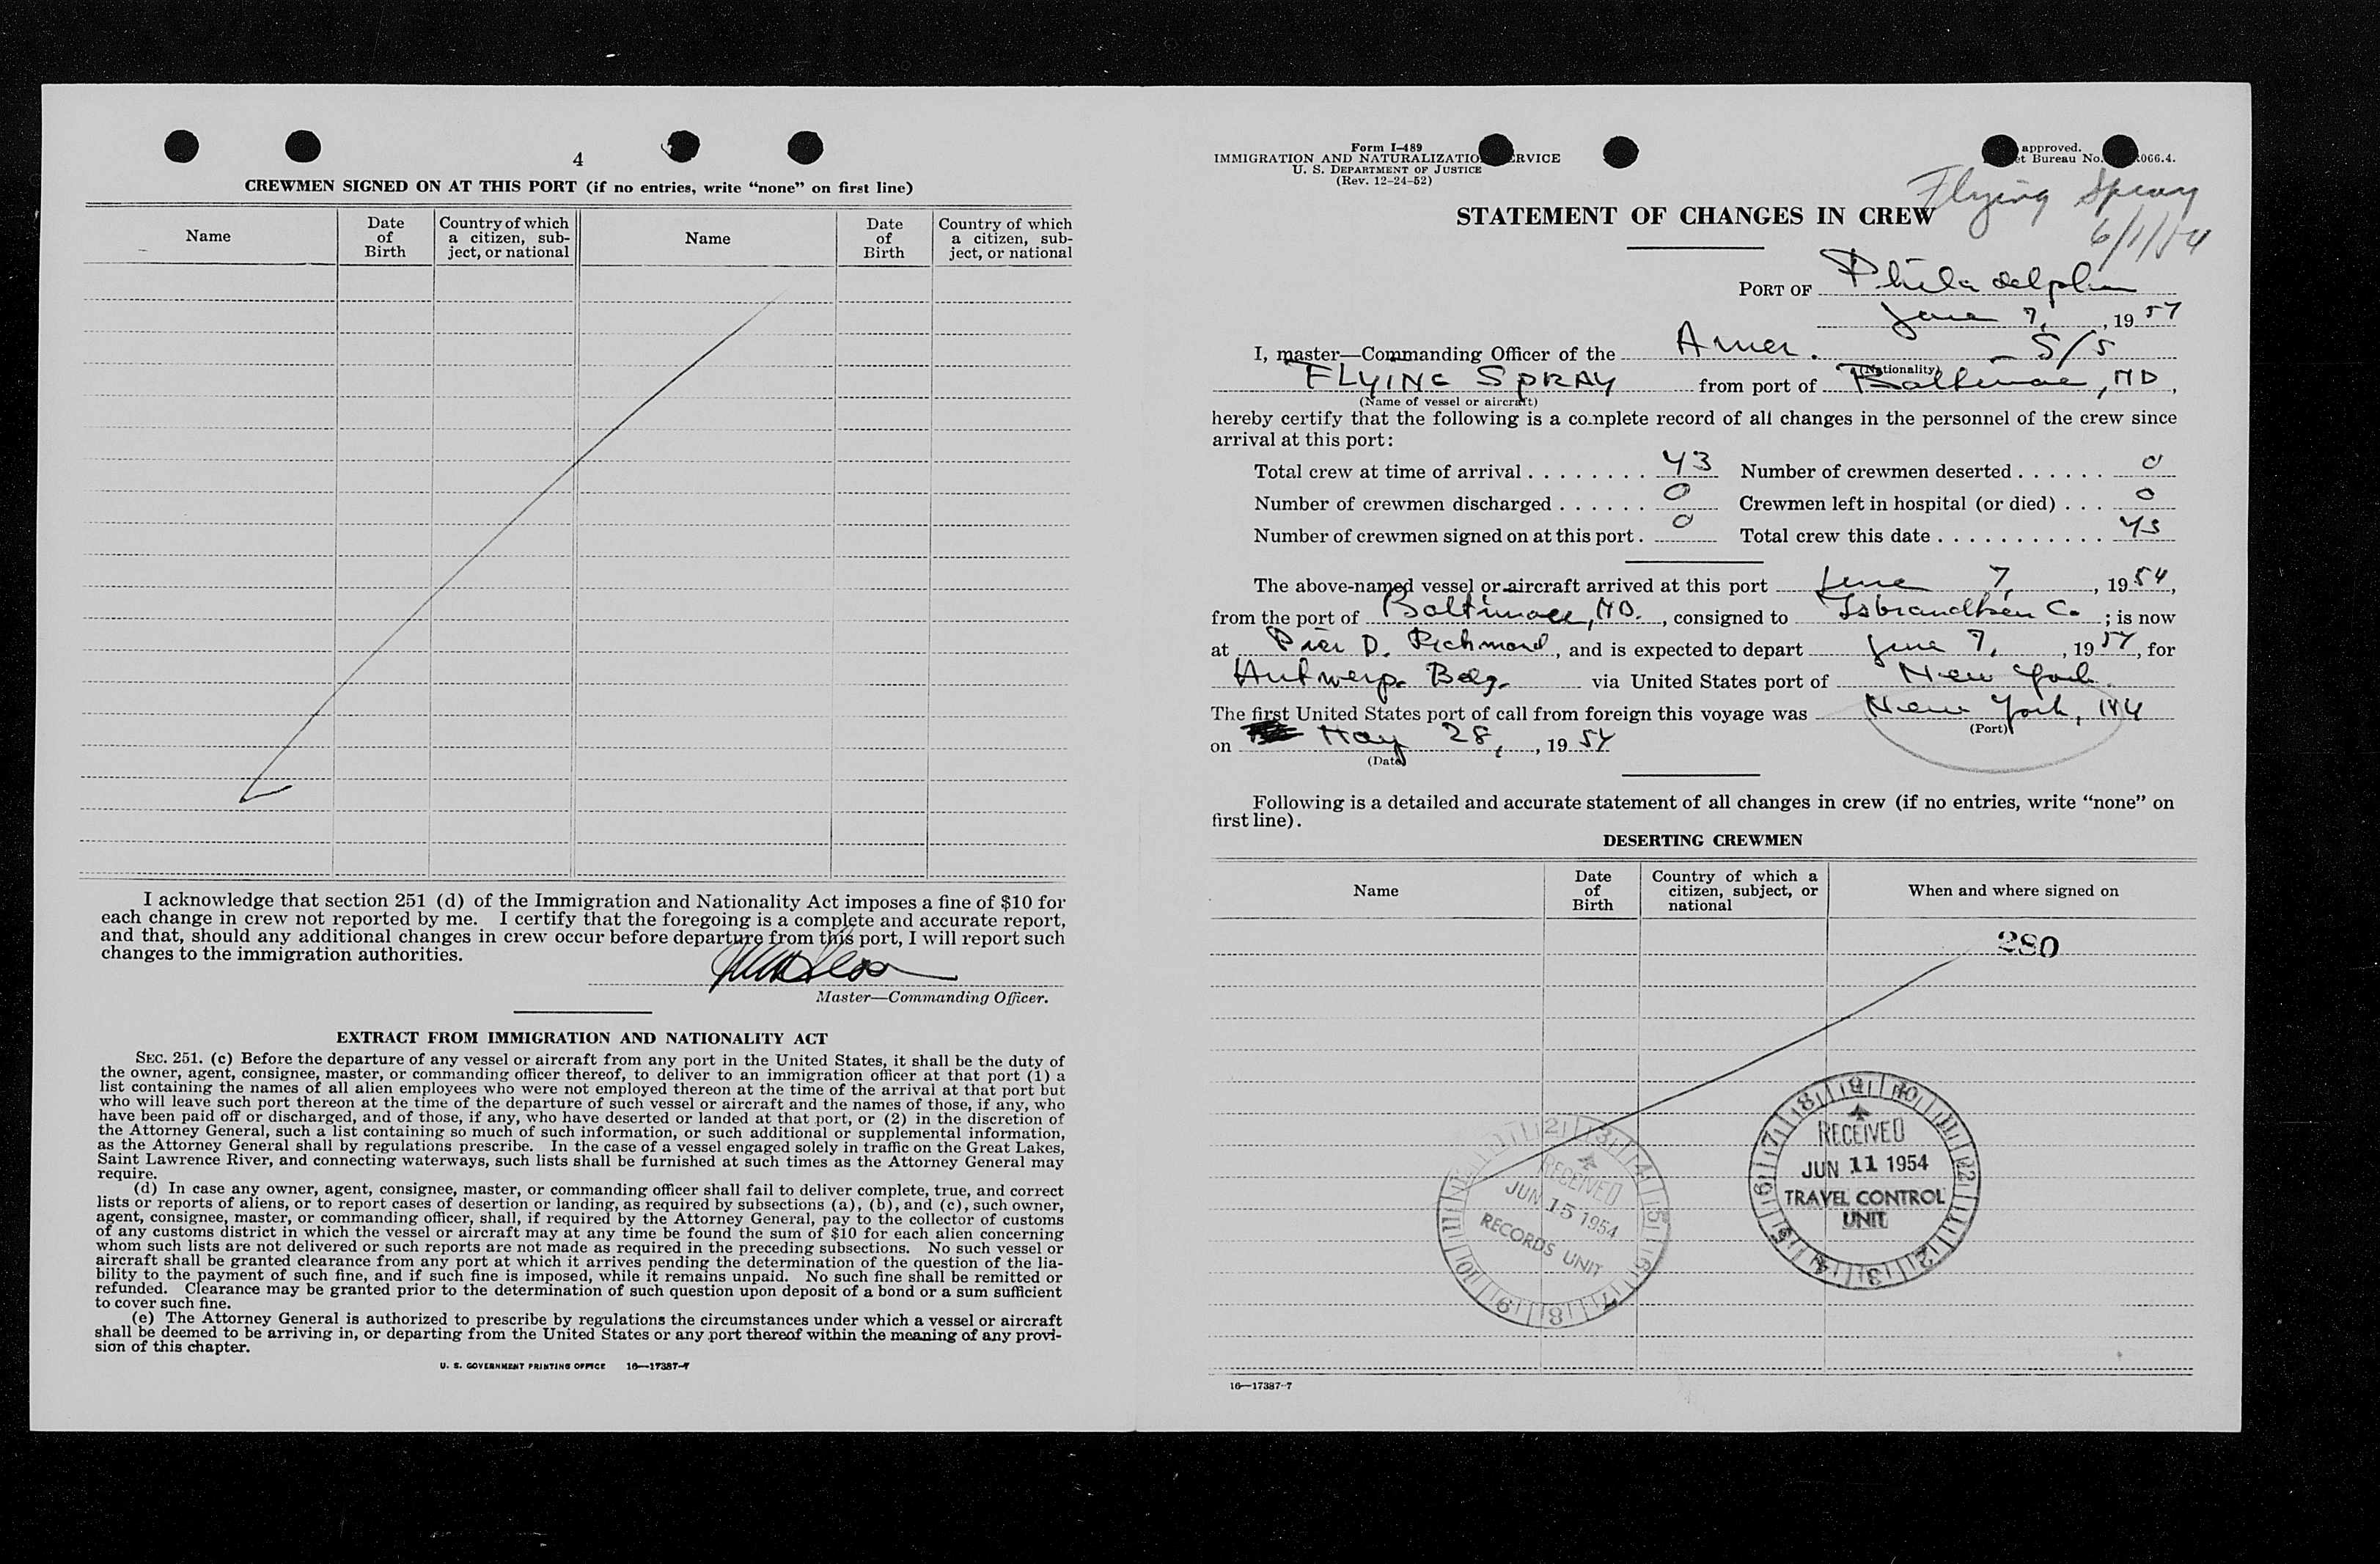 4
CREWMEN SIGNED ON AT THIS PORT (if no entries, write “none” on first line)
Name
Date of Birth
Country of which a citizen, sub-ject, or national
Name
Date of Birth
Country of which a citizen, sub-ject, or national
I acknowledge that section 251 (d) of the Immigration and Nationality Act imposes a fine of $10 for
each change in crew not reported by me. I certify that the foregoing is a complete and accurate report,
and that, should any additional changes in crew occur before departure from this port, I will report such
changes to the immigration authorities.
Master—Commanding Officer.
EXTRACT FROM IMMIGRATION AND NATIONALITY ACT
SEC. 251. (c) Before the departure of any vessel or aircraft from any port in the United States, it shall be the duty of
the owner, agent, consignee, master, or commanding officer thereof, to deliver to an immigration officer at that port (1) a
list containing the names of all alien employees who were not employed thereon at the time of the arrival at that port but
who will leave such port thereon at the time of the departure of such vessel or aircraft and the names of those, if any, who
have been paid off or discharged, and of those, if any, who have deserted or landed at that port, or (2) in the discretion of
the Attorney General, such a list containing so much of such information, or such additional or supplemental information,
as the Attorney General shall by regulations prescribe. In the case of a vessel engaged solely in traffic on the Great Lakes,
Saint Lawrence River, and connecting waterways, such lists shall be furnished at such times as the Attorney General may
require.
(d) In case any owner, agent, consignee, master, or commanding officer shall fail to deliver complete, true, and correct
lists or reports of aliens, or to report cases of desertion or landing, as required by subsections (a), (b), and (c), such owner,
agent, consignee, master, or commanding officer, shall, if required by the Attorney General, pay to the collector of customs
of any customs district in which the vessel or aircraft may at any time be found the sum of $10 for each alien concerning
whom such lists are not delivered or such reports are not made as required in the preceding subsections. No such vessel or
aircraft shall be granted clearance from any port at which it arrives pending the determination of the question of the lia-
bility to the payment of such fine, and if such fine is imposed, while it remains unpaid. No such fine shall be remitted or
refunded. Clearance may be granted prior to the determination of such question upon deposit of a bond or a sum sufficient
to cover such fine.
(e) The Attorney General is authorized to prescribe by regulations the circumstances under which a vessel or aircraft
shall be deemed to be arriving in, or departing from the United States or any port thereof within the meaning of any provi-
sion of this chapter.
U. S. GOVERNMENT PRINTING OFFICE 16—17387-7
Form I-489
IMMIGRATION AND NATURALIZATIO RVICE
U. S. DEPARTMENT OF JUSTICE
(Rev. 12-24-52)
approved.
et Bureau No. 066.4.
Flying Spray
6/1/54
STATEMENT OF CHANGES IN CREW
PORT OF Philadelphia
June 7, , 1954
I, master—Commanding Officer of the Amer. – S/S
(Nationality)
FLYING SPRAY from port of Baltimore, MD,
(Name of vessel or aircraft)
hereby certify that the following is a complete record of all changes in the personnel of the crew since
arrival at this port:
Total crew at time of arrival . . . . . . . . 43 Number of crewmen deserted . . . . . . 0
Number of crewmen discharged . . . . . . 0 Crewmen left in hospital (or died) . . . 0
Number of crewmen signed on at this port . 0 Total crew this date . . . . . . . . . . . 43
The above-named vessel or aircraft arrived at this port June 7, , 1954,
from the port of Baltimore, MD., consigned to Isbrandtsen Co ; is now
at Pier D. Richmond, and is expected to depart June 7, , 1954, for
Antwerp. Belg. via United States port of New York
The first United States port of call from foreign this voyage was New York, NY
(Port)
on May 28, , 1954
(Date)
Following is a detailed and accurate statement of all changes in crew (if no entries, write “none” on
first line).
DESERTING CREWMEN
Name
Date of Birth
Country of which a citizen, subject, or national
When and where signed on
280
RECEIVED
JUN 11 1954
TRAVEL CONTROL
UNIT
RECEIVED
JUN 15 1954
RECORDS UNIT
16—17387-7